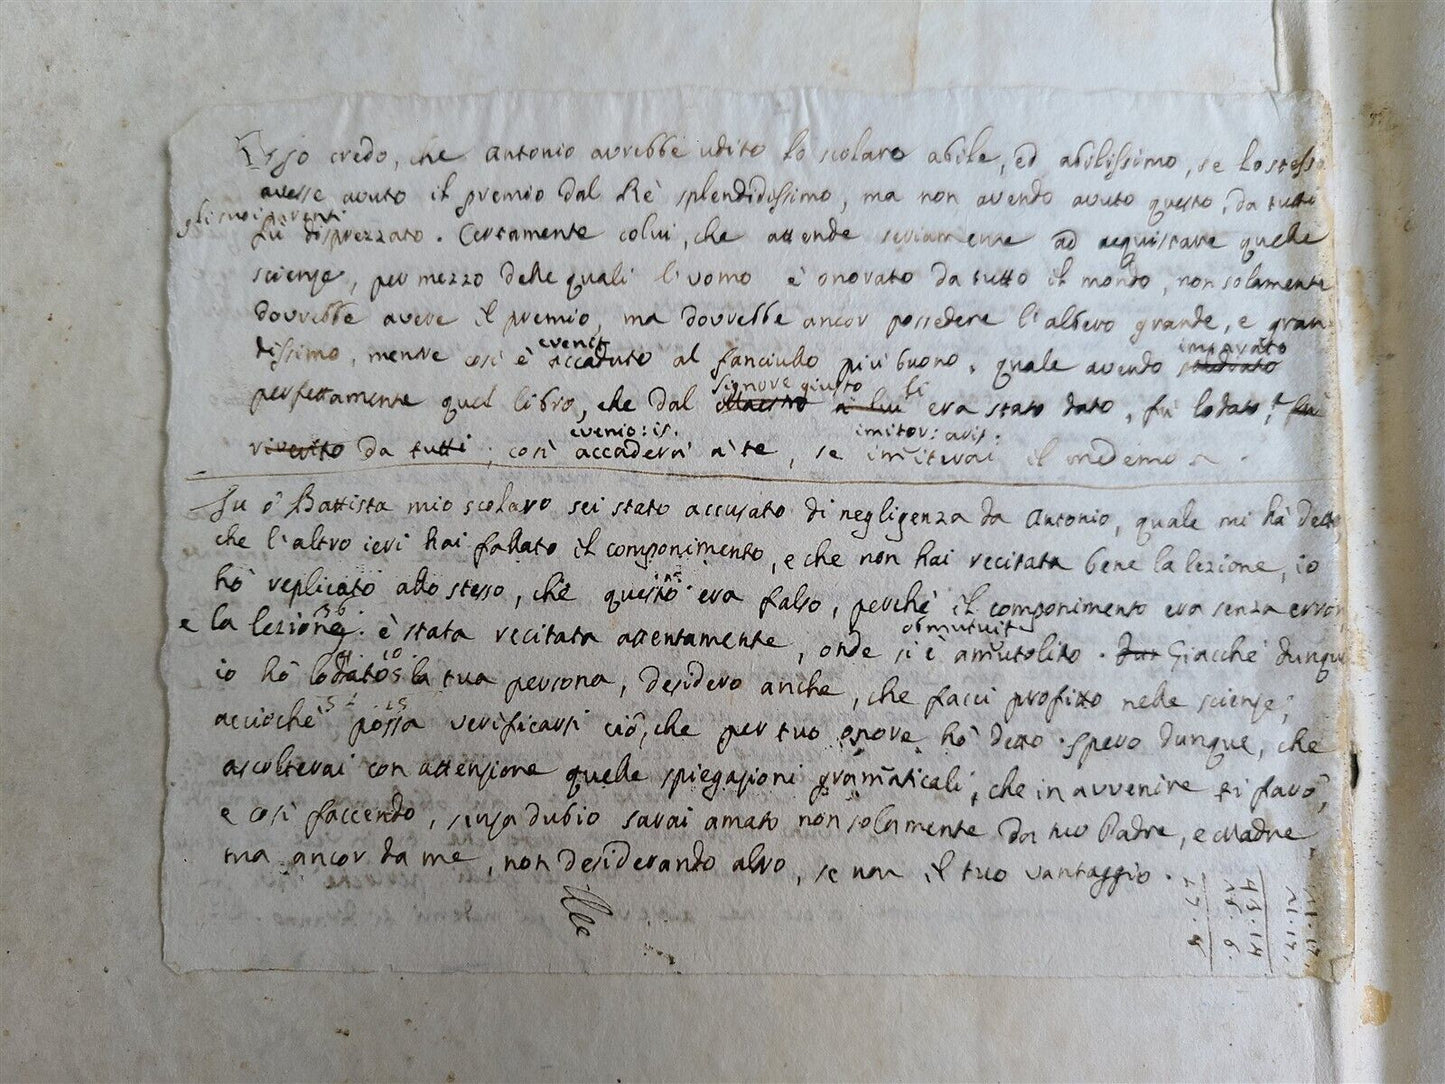 Esso credo, che Antonio avrebbe udito lo scolaro abile, ed abilissimo, se lo stesso
avesse avuto il premio dal Rè splendidissimo, ma non avendo avuto questo, da tutti
gli suoi parenti
fù disprezzato. Certamente colui, che attende seriamente ad acquistare quelle
scienze, per mezzo delle quali l'uomo è onorato da tutto il mondo, non solamente
dovrebbe avere il premio, ma dovrebbe ancor possedere l'albero grande, e gran-
evenit imparato
dissimo, mentre così è accaduto al fanciullo più buono, quale avendo studiato
Signore giusto li
perfettamente quel libro, che dal Maestro a lui era stato dato, fù lodato, fù
evenio: is. imitor: aris:
riverito da tutti; così accaderà à te, se imiterai il medemo.
Tu ô Battista mio scolaro sei stato accusato di negligenza da Antonio, quale mi hà detto,
che l'altro ieri hai fallato il componimento, e che non hai recitata bene la lezione, io
hò replicato allo stesso, che questo era falso, perché il componimento era senza errori,
36 obmutuit
e la lezione è stata recitata attentamente, onde si è amutolito. Giacché dunque
io hò lodato la tua persona, desidero anche, che facci profitto nelle scienze;
acciochè possa verificarsi ciò, che per tuo onore hò detto. Spero dunque, che
ascolterai con attenzione quelle spiegazioni gramaticali, che in avvenire ti farò,
e così faccendo, senza dubio sarai amato non solamente da tuo Padre, e Madre,
ma ancor da me, non desiderando altro, se non il tuo vantaggio.
21.17.
21.17.
43.14
27.8